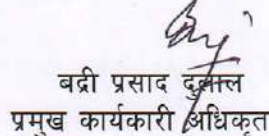 बद्री प्रसाद दुलाल
प्रमुख कार्यकारी अधिकृत